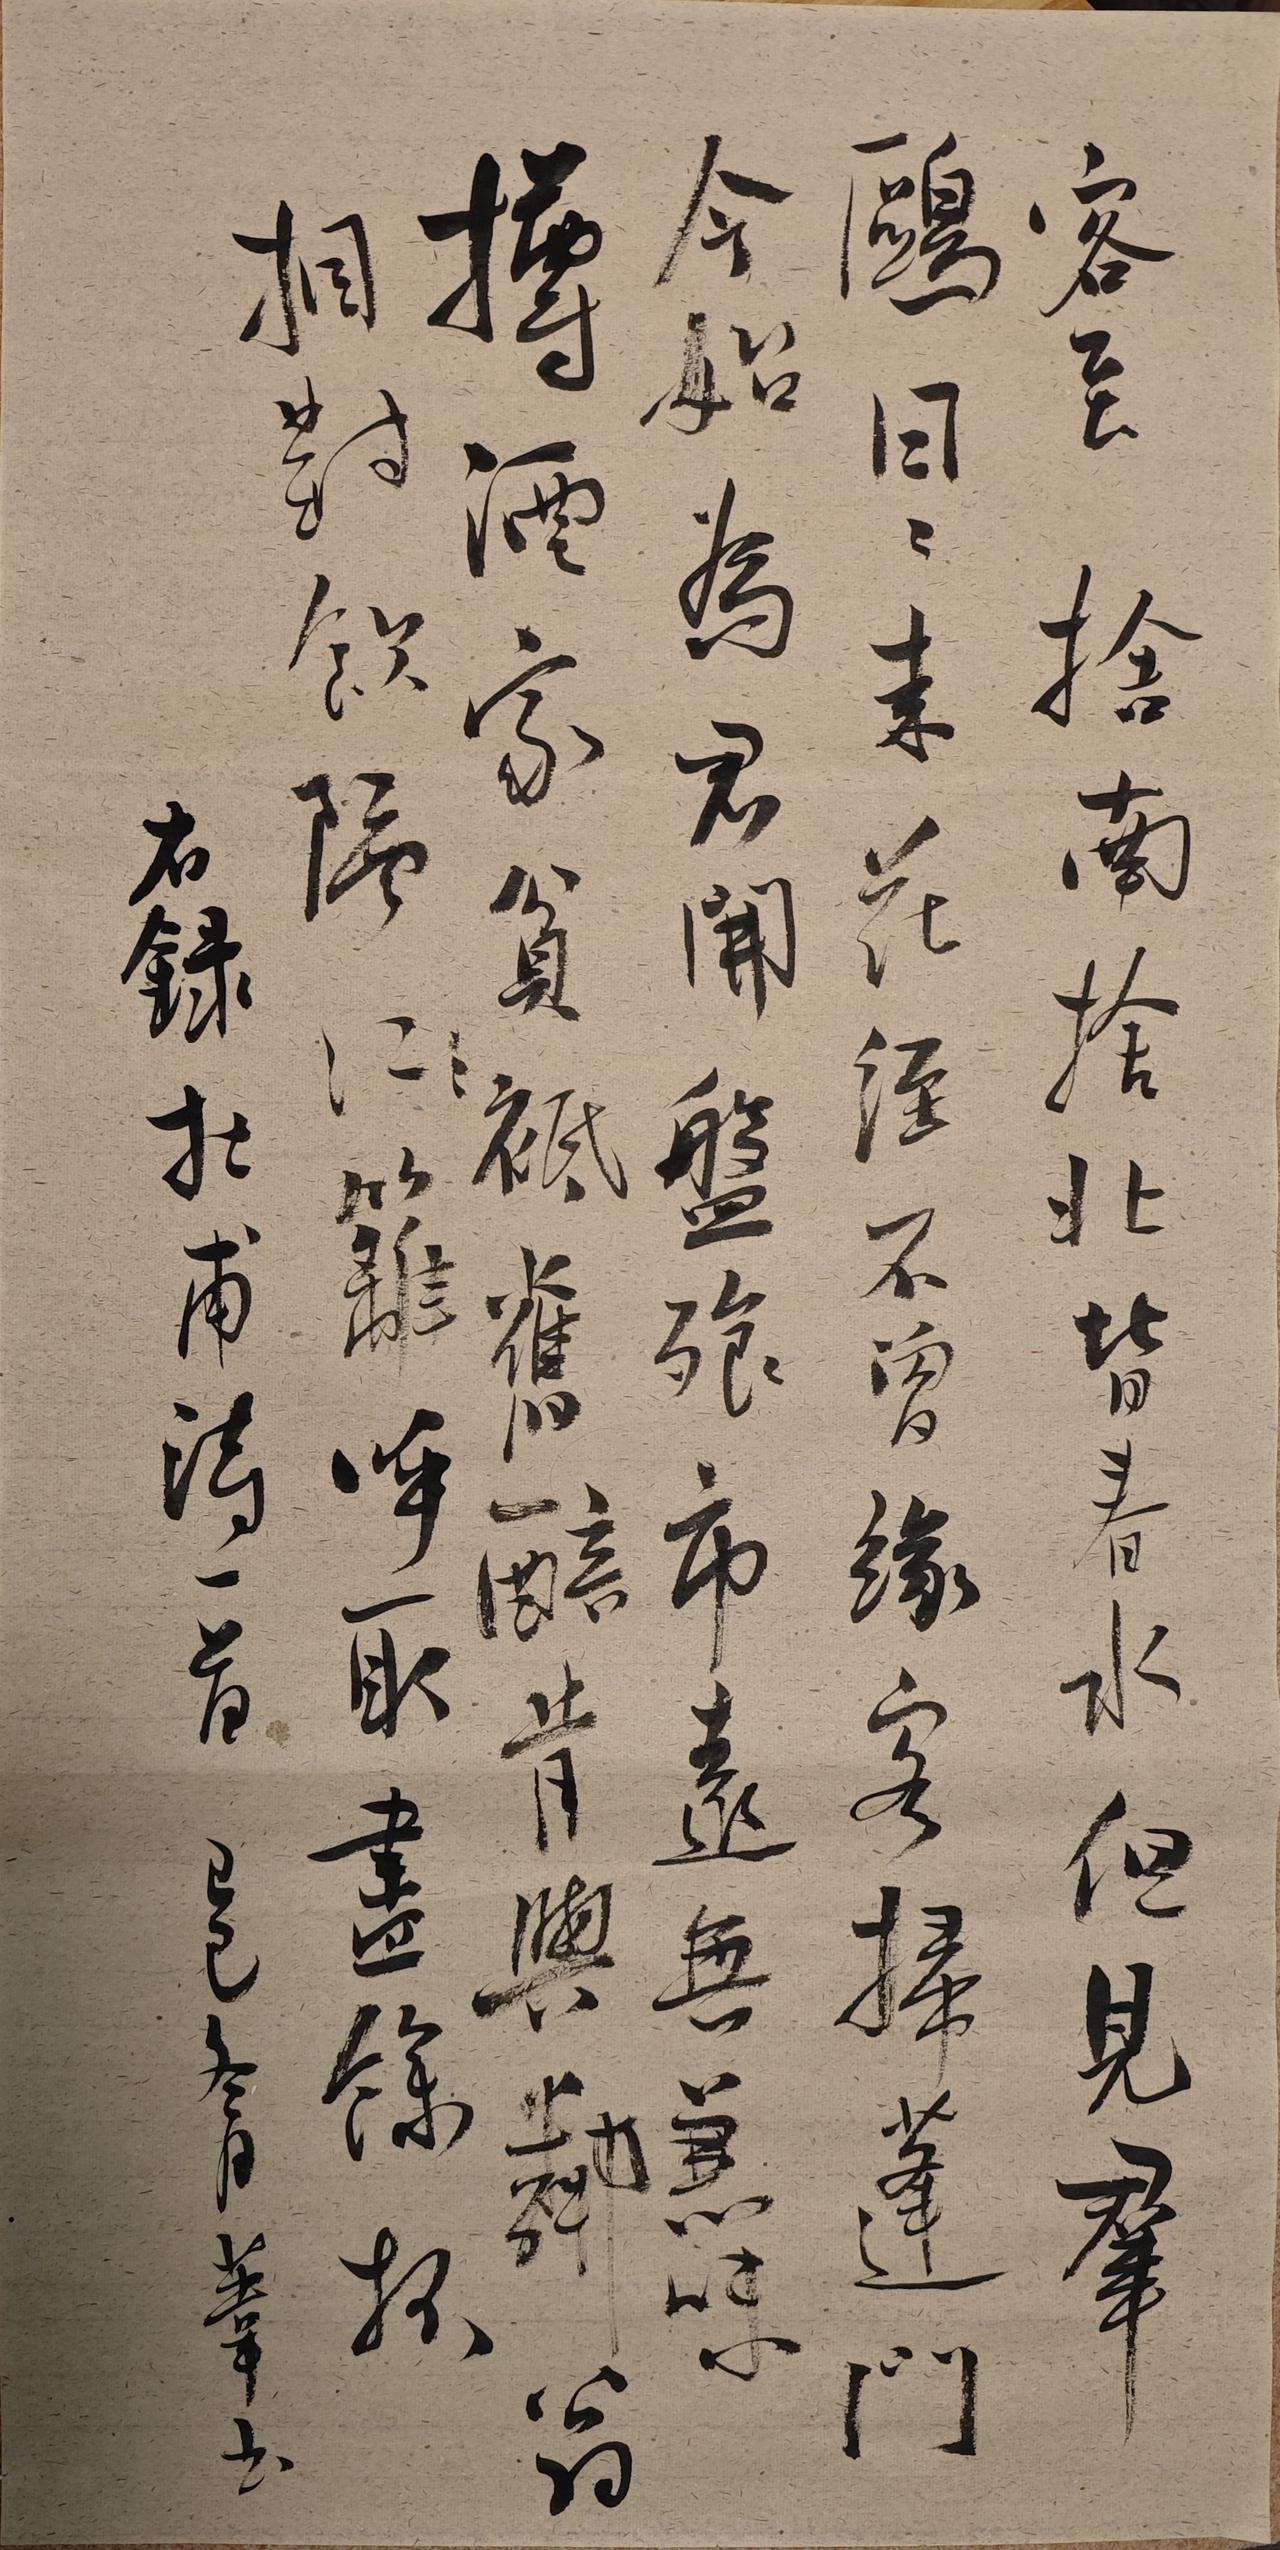 客至 捨南捨北皆春水但見羣
鷗日〻来花徑不曾緣客掃蓬門
今始為君開盤飧市遠無兼味
樽酒家貧祇舊醅肯與鄰翁
相對飲隔江籬呼取盡餘杯
右錄杜甫詩一首 乙巳冬月葦书